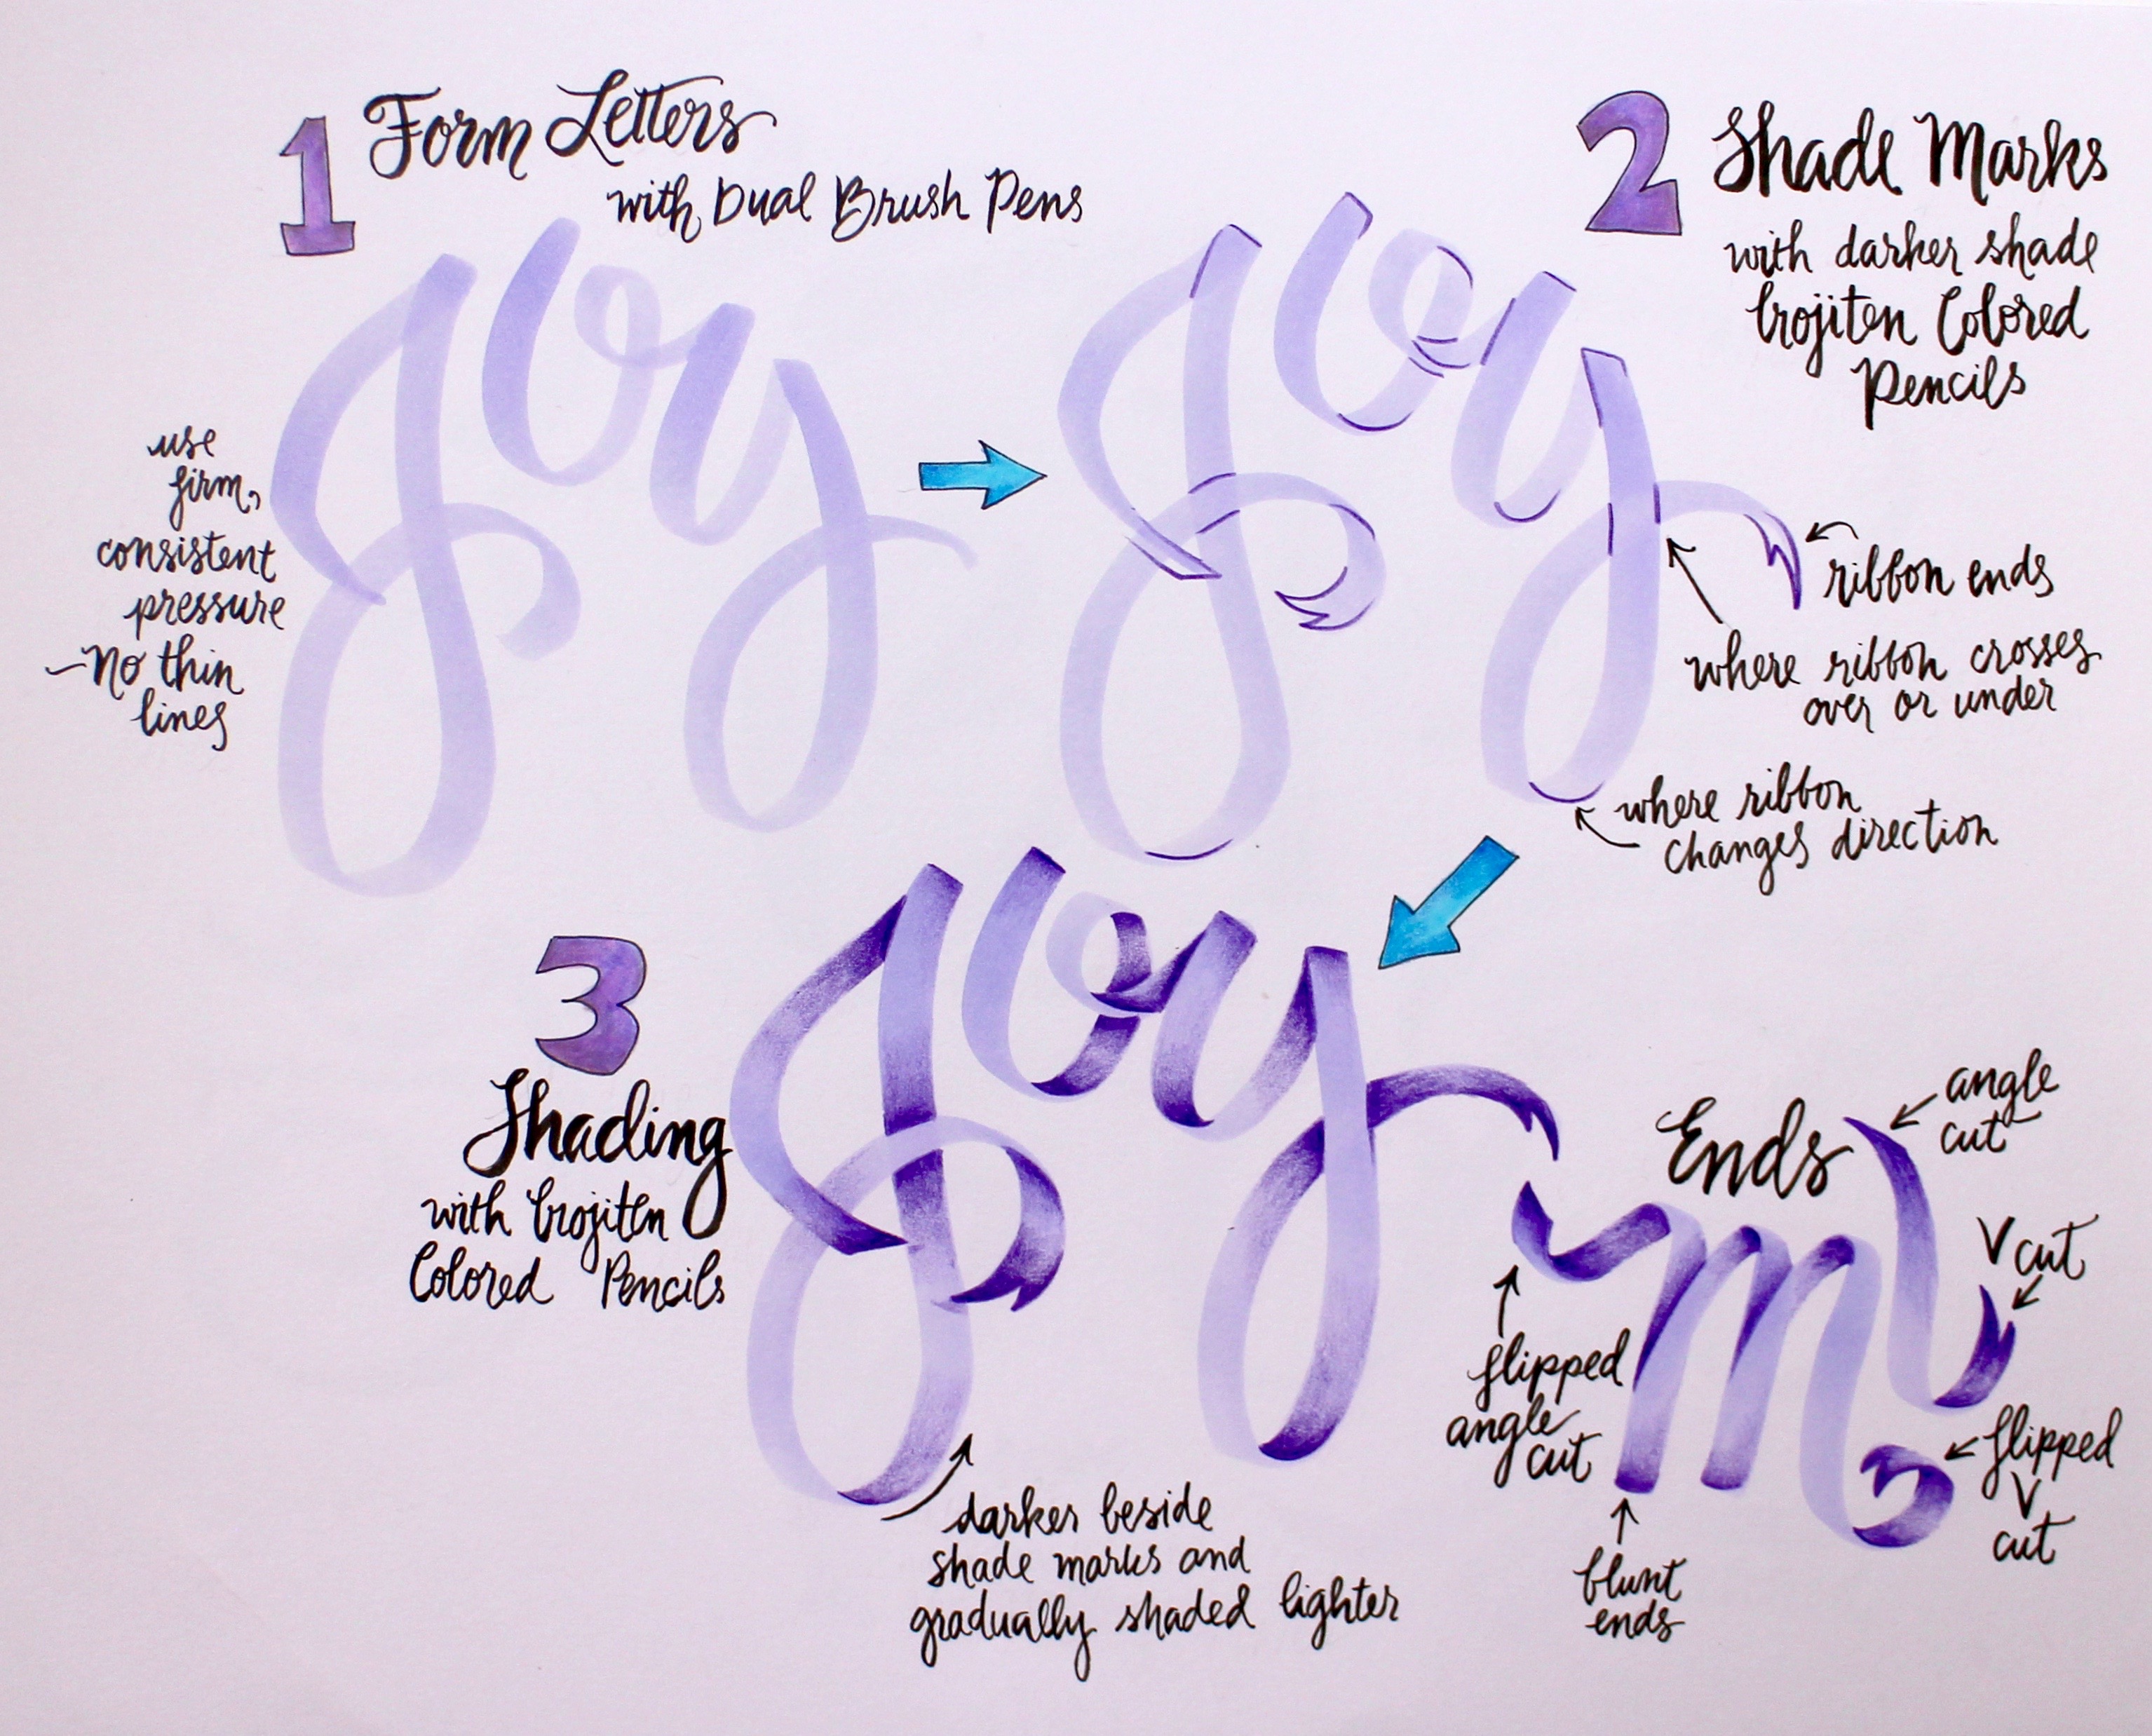 1 Form Letters
with Dual Brush Pens
use
firm,
consistent
pressure
-No thin
lines
Joy
2 Shade Marks
with darker shade
Irojiten Colored
Pencils
Joy
ribbon ends
where ribbon crosses
over or under
where ribbon
changes direction
3
Shading
with Irojiten
Colored Pencils
Joy
darker beside
shade marks and
gradually shaded lighter
Ends
angle
cut
V cut
flipped
V
cut
flipped
angle
cut
blunt
ends
m